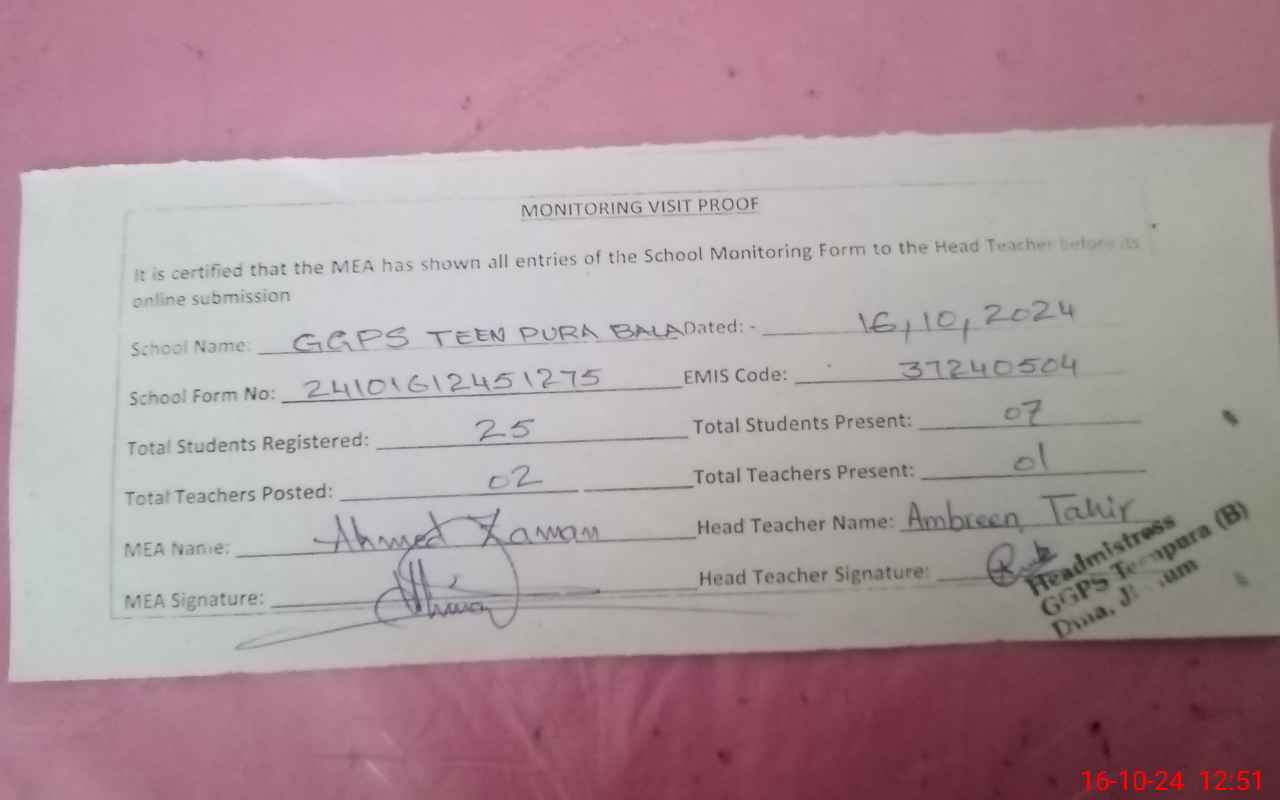 MONITORING VISIT PROOF
It is certified that the MEA has shown all entries of the School Monitoring Form to the Head Teacher before its
online submission
School Name: GGPS TEEN PURA BALA Dated: - 16,10,2024
School Form No: 24101612451275 EMIS Code: 37240504
Total Students Registered: 25 Total Students Present: 07
Total Teachers Posted: 02 Total Teachers Present: 01
MEA Name: Ahmed Zaman Head Teacher Name: Ambreen Tahir
MEA Signature: Head Teacher Signature:
Headmistress
GGPS (B)
Dina,
16-10-24 12:51